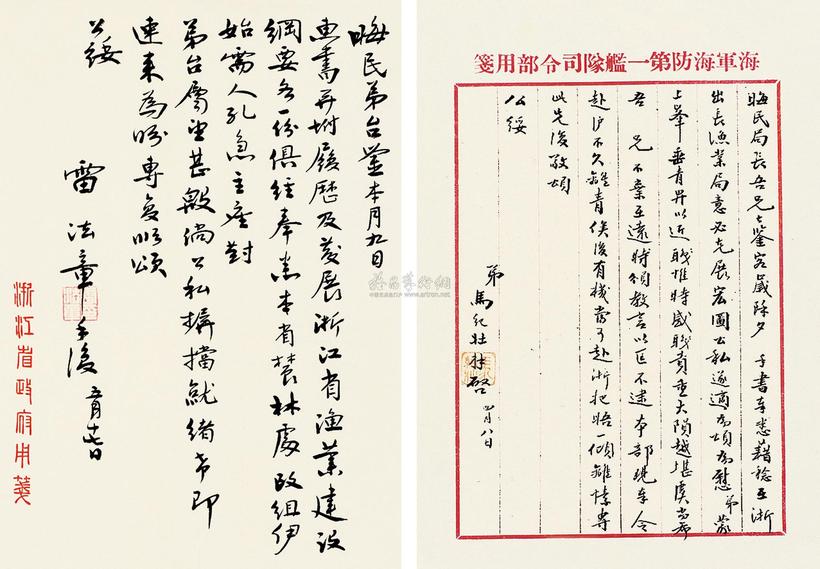 晦民弟台鉴本月九日
惠书并附履历及发展浙江省渔业建设
纲要各一份俱经奉悉本省农林处改组伊
始需人孔急主座对
弟台属望甚殷倘公私摒挡就绪希即
速来为盼专复顺颂
公绥
雷法章手复
五月十七日
浙江省政府用笺
海軍海防第一艦隊司令部用箋
晦民局长吾兄大鉴客岁除夕 手书奉悉藉谂在浙
出长渔业局意必克展宏图公私遂适为颂为慰弟蒙
上峰垂青畀以近职惟时感职责重大陨越堪虞尚希
吾兄不弃在远时颁教言以匡不逮本部现奉令
赴沪不久离青俟后有机当可赴浙把晤一倾离愫专
此先复敬颂
公绥
弟
马纪壮拜启
四月八日